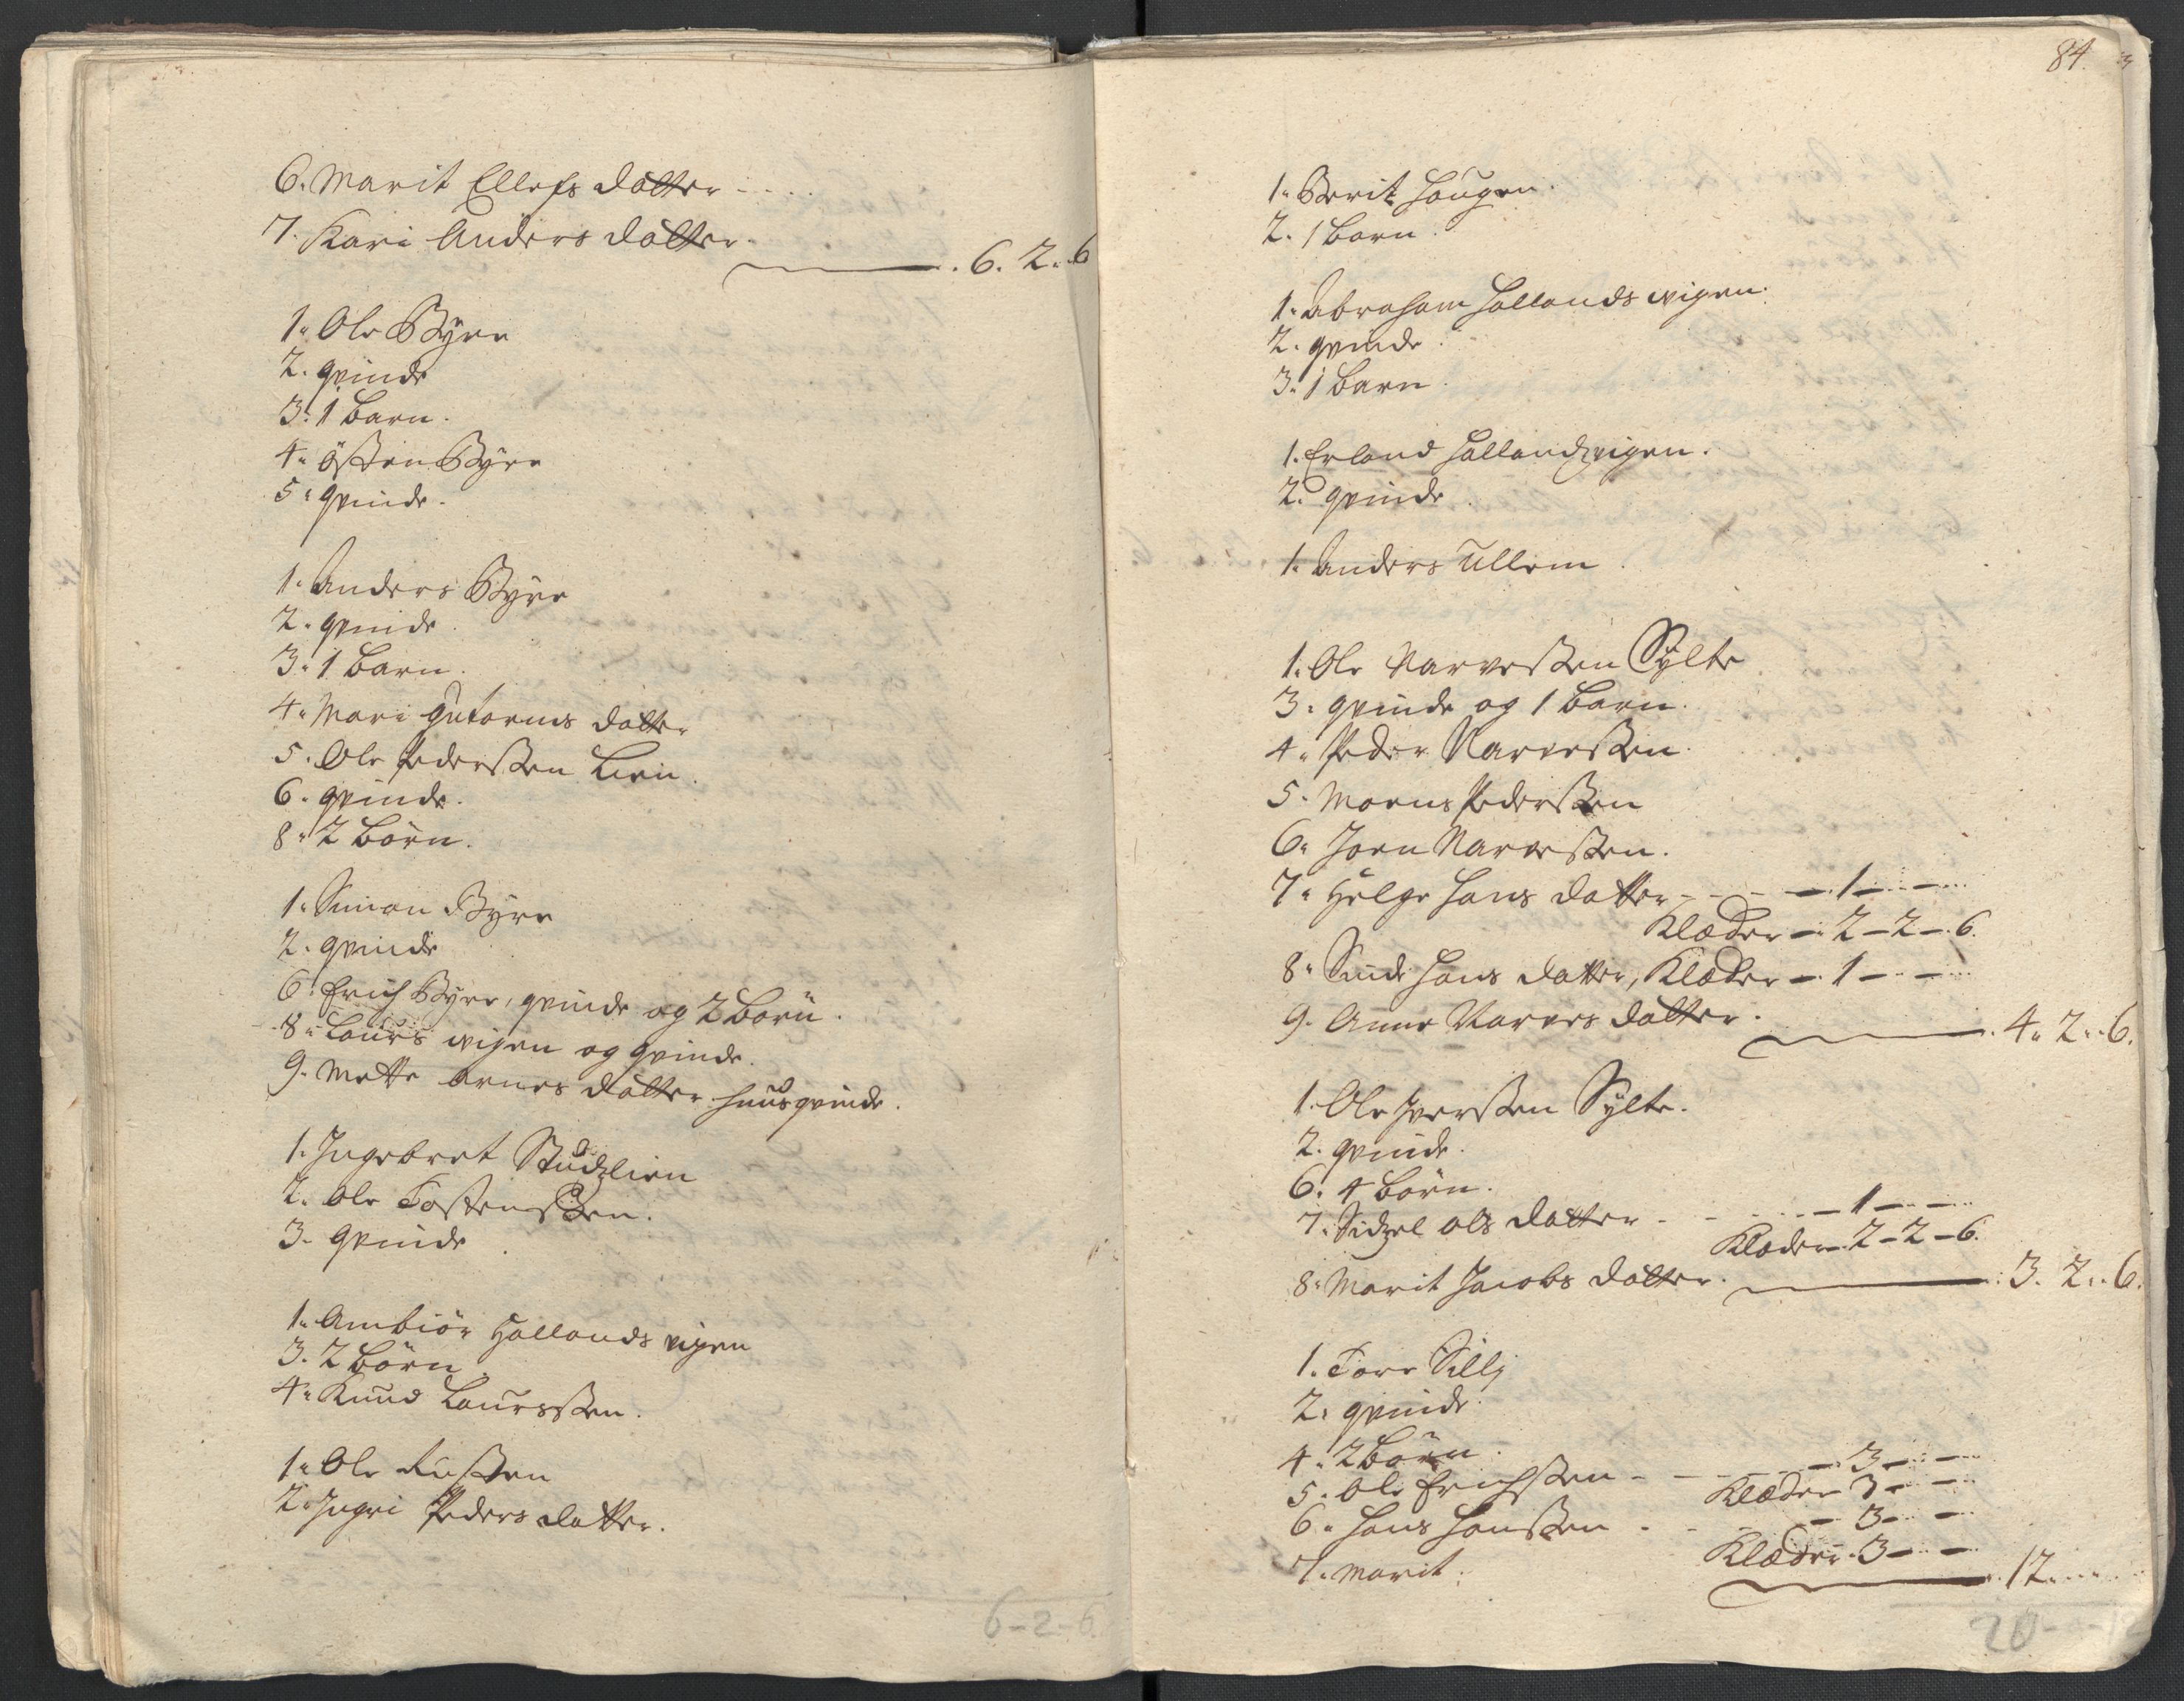 6. Marit Ellefs datter
7. Kari Anders datter
6. 2. 6
1. Ole Byre
2. qvinde
3. 1 barn.
4. östen Byre
5. qvinde.
1. Anders Byre
2. qvinde
3. 1 barn.
4. Mari gutorms datter
5. Ole Pederssen Lien.
6. qvinde.
8. 2 börn.
1. Simon Byre
2. qvinde
6. Erich Byre, qvinde og 2 börn.
8. Laurs wigen og qvinde.
9. Mette arnes datter huusqvinde.
1. Ingebret Studzlien
2. Ole Tostenssen.
3. qvinde
1. Ambiör Hallands vigen
3. 2 börn
4. Knud Laurssen.
1. Ole
2. Ingri Peders datter.
6-2-6
84.
1. Berit Haugen.
2. 1 barn.
1. Abraham Hallands wigen.
2. qvinde.
3. 1 barn.
1. Erland Hallandzvigen.
2. qvinde.
1. Anders Ullem.
1. Ole Narvessen Sylte
3. qvinde og 1 barn.
4. Peder Narvessen.
5. Moens Pederssen
6. Joen Narvessen.
7. Helge Hans datter - - - 1 - -
Klæder - 2 - 2 - 6.
8. Hans datter, Klæder - 1 - -
9. Anne Narves datter.
4. 2. 6.
1. Ole Iverssen Sylte.
2. qvinde.
6. 4 börn.
7. Sidzel Ols datter - - - 1 - -
Klæder 2 - 2 - 6.
8. Marit Jacobs datter. 3. 2. 6.
1. Tore Sillj
2. qvinde.
4. 2 börn.
5. Ole Erichssen - - - 3 - -
Klæder 3 - -
6. Hans Hanssen - - - 3 - -
Klæder 3 - -
7. Marit. 12.
20-